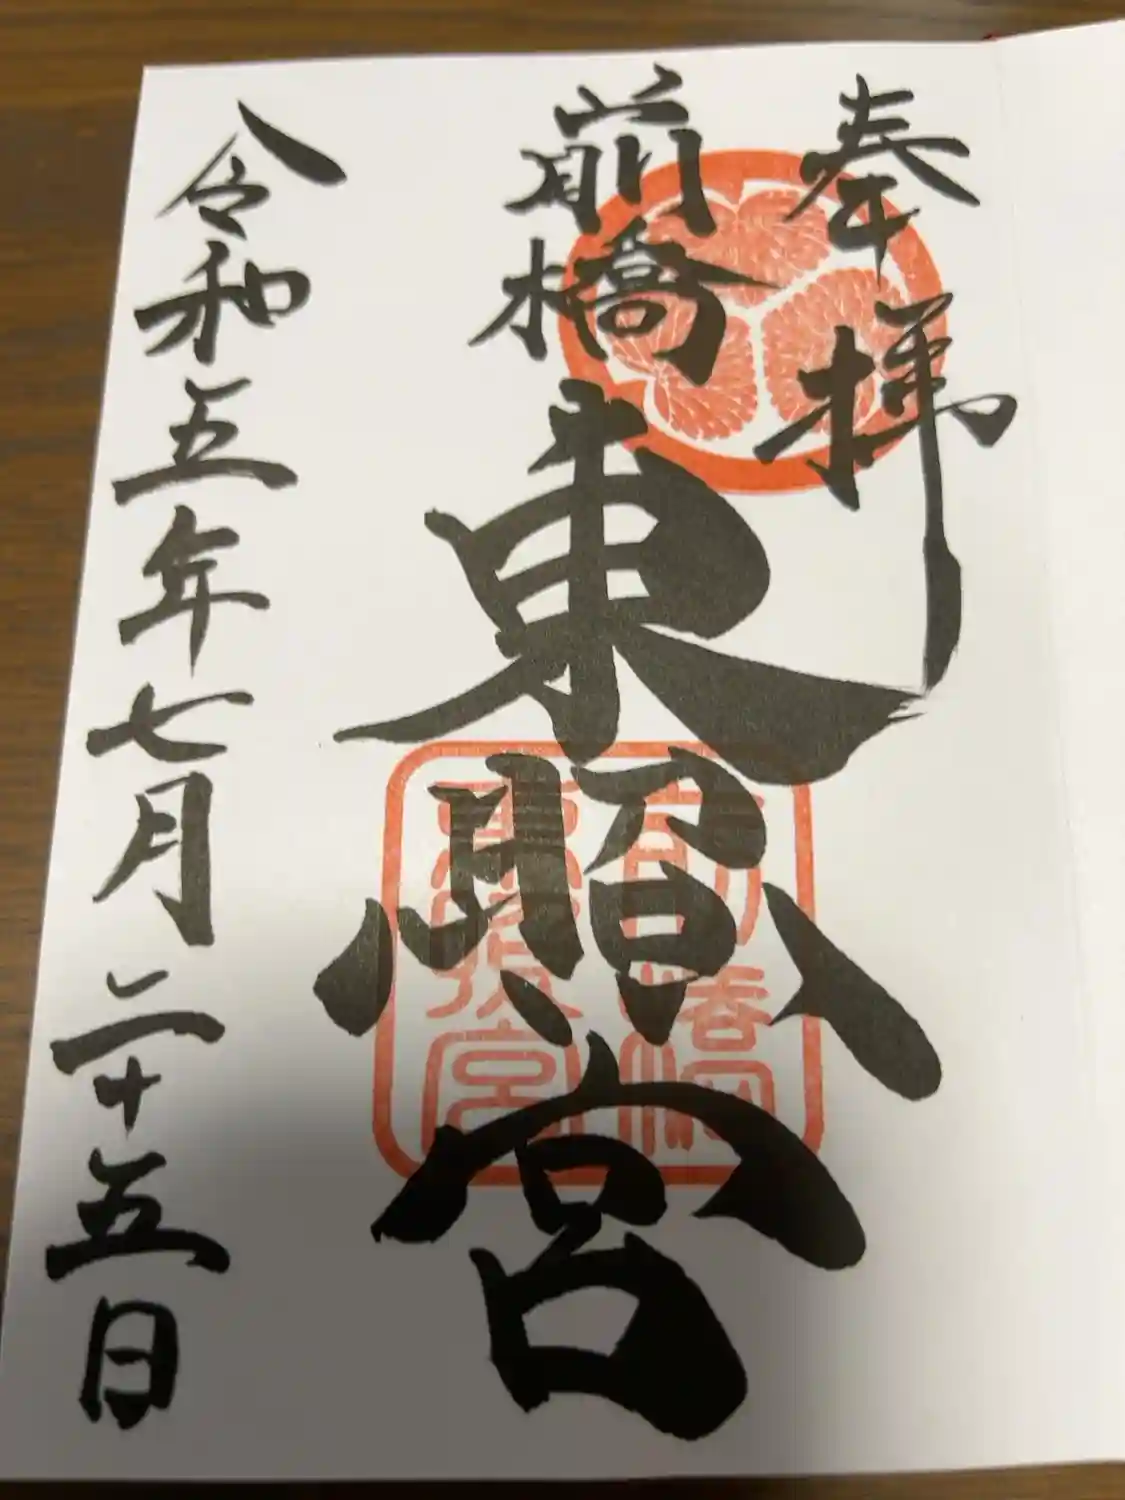 奉拝
前橋
東照宮
令和五年七月二十五日
前橋
東照宮